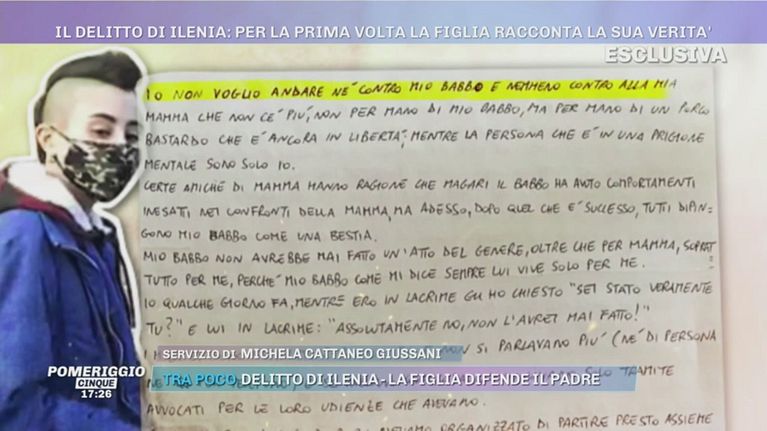 IL DELITTO DI ILENIA: PER LA PRIMA VOLTA LA FIGLIA RACCONTA LA SUA VERITA'
ESCLUSIVA
IO NON VOGLIO ANDARE NE' CONTRO MIO BABBO E NEMMENO CONTRO ALLA MIA
MAMMA CHE NON CE' PIU', NON PER MANO DI MIO BABBO, MA PER MANO DI UN PORCO
BASTARDO CHE E' ANCORA IN LIBERTA', MENTRE LA PERSONA CHE E' IN UNA PRIGIONE
MENTALE SONO SOLO IO.
CERTE AMICHE DI MAMMA HANNO RAGIONE CHE MAGARI IL BABBO HA AVUTO COMPORTAMENTI
INESATI NEI CONFRONTI DELLA MAMMA, MA ADESSO, DOPO QUEL CHE E' SUCCESSO, TUTTI DIPIN-
GONO MIO BABBO COME UNA BESTIA.
MIO BABBO NON AVREBBE MAI FATTO UN'ATTO DEL GENERE, OLTRE CHE PER MAMMA, SOPRAT
TUTTO PER ME, PERCHE' MIO BABBO COME MI DICE SEMPRE LUI VIVE SOLO PER ME.
IO QUALCHE GIORNO FA, MENTRE ERO IN LACRIME GLI HO CHIESTO "SEI STATO VERAMENTE
TU?" E LUI IN LACRIME: "ASSOLUTAMENTE NO, NON L'AVREI MAI FATTO!"
NON SI PARLAVANO PIU' (NE' DI PERSONA
SERVIZIO DI MICHELA CATTANEO GIUSSANI
TRAMITE
TRA POCO DELITTO DI ILENIA - LA FIGLIA DIFENDE IL PADRE
AVVOCATI PER LE LORO UDIENZE CHE AVEVANO.
ORGANIZZATO DI PARTIRE PRESTO ASSIEME
POMERIGGIO
CINQUE
17:26